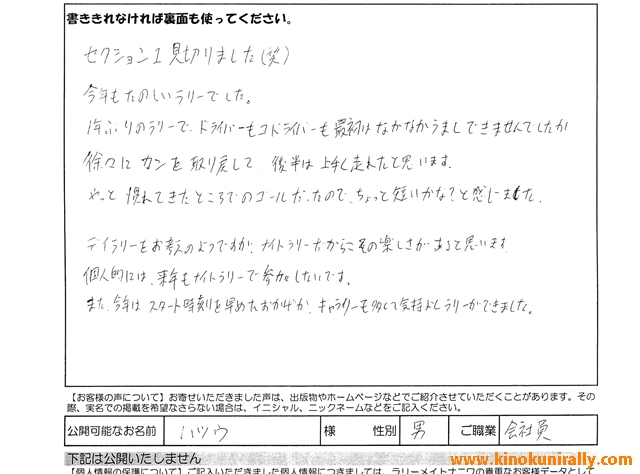 書ききれなければ裏面も使ってください。
セクション1見切りました(笑)
今年もたのしいラリーでした。
1年ぶりのラリーで、ドライバーもコドライバーも最初はなかなかうまくできませんでしたが
徐々にカンを取り戻して、後半は上手く走れたと思います。
やっと慣れてきたところでのゴールだったので、ちょっと短いかな?と感じました。
デイラリーをお考えのようですが、ナイトラリーだからこその楽しさがあると思います。
個人的には、来年もナイトラリーで参加したいです。
また、今年はスタート時刻を早めたおかげか、ギャラリーも多くて気持よくラリーができました。
【お客様の声について】お寄せいただきました声は、出版物やホームページなどでご紹介させていただくことがあります。その
際、実名での掲載を希望なさらない場合は、イニシャル、ニックネームなどをご記入ください。
公開可能なお名前 ハツウ 様 性別 男 ご職業 会社員
下記は公開いたしません
【個人情報の保護について】ご記入いただきました個人情報につきましては、ラリーメイトナニワの貴重なお客様データとして
www.kinokunirally.com